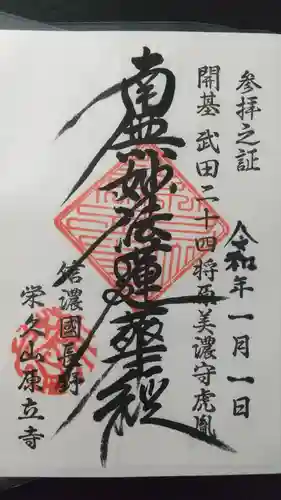 参拝之証
令和 年一月一日
開基 武田二十四将原美濃守虎胤
南無妙法蓮華経
信濃國長野
栄久山原立寺